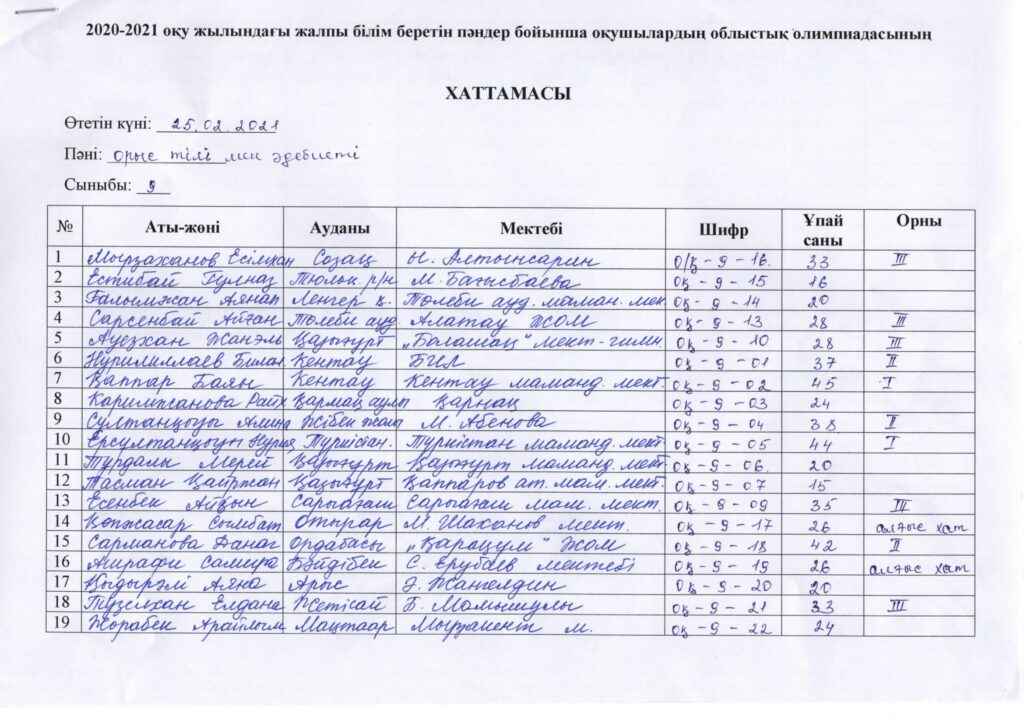 2020-2021 оқу жылындағы жалпы білім беретін пәндер бойынша оқушылардың облыстық олимпиадасының
ХАТТАМАСЫ
Өтетін күні: 25.02.2021
Пәні: орыс тілі мен әдебиеті
Сыныбы: 9
№ Аты-жөні Ауданы Мектебі Шифр Ұпай саны Орны
1 Мырзаханов Есімхан Созақ Ы. Алтынсарин оқ-9-16. 33 III
2 Естибай Гулназ Тюльк. р/н М. Бағысбаева оқ-9-15 16
3 Ғалымжан Аянат Леңгер қ. Төлеби ауд. маман. мек. оқ-9-14 20
4 Сарсенбай Айған Төлеби ауд. Алатау ЖОМ оқ-9-13 28 III
5 Ауезхан Жанэль Қазығурт „Болашақ" мект-гимн. оқ-9-10 28 III
6 Нурилиллаев Билал Кентау БИЛ оқ-9-01 37 II
7 Қаппар Баян Кентау Кентау маманд. мект. оқ-9-02 45 I
8 Каримжанова Райх Қармақ ауыл Қарнақ оқ-9-03 24
9 Султанқұғы Амина Жібек жолы М. Абенова оқ-9-04 38 II
10 Ерсултанқызы Нурия, Туркістан. Туркістан маманд. мект. оқ-9-05 44 I
11 Тұрдалы Мерей Қазығурт Қазығурт маманд. мект. оқ-9-06. 20
12 Тасман Қайтжан Қазығурт Қаппаров ат. мам. мект. оқ-9-07 15
13 Есенбек Айқын Сарыағаш Сарыағаш мам. мект. оқ-9-09 35 III
14 Көпжасар Сымбат Отырар М. Шаханов мект. оқ-9-17 26 алғыс хат
15 Сарманова Данаг Ордабасы „Қарақум" ЖОМ оқ-9-18 42 II
16 Ашрафи Самира Бәйдібек С. Ерубаев мектебі оқ-9-19 26 алғыс хат
17 Қыдырәлі Аяна Арыс Ә. Жангелдин оқ-9-20 20
18 Түзелхан Елдана Жетісай Б. Момышұлы оқ-9-21 33 III
19 Жорабек Арайлым Мақтаар Мырзакент м. оқ-9-22 24